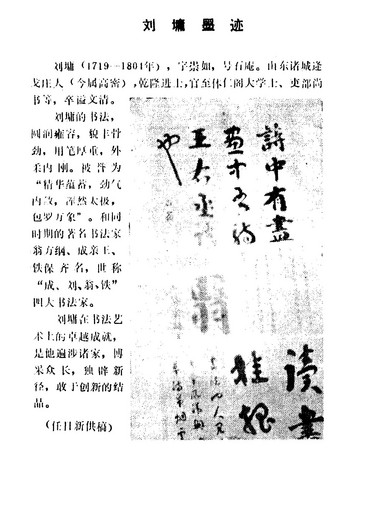 刘墉墨迹
刘墉（1719—1804年），字崇如，号石庵。山东诸城逄
戈庄人（今属高密），乾隆进士，官至体仁阁大学士、吏部尚
书等，卒谥文清。
刘墉的书法，
圆润雍容，貌丰骨
劲，用笔厚重，外
柔内刚。被誉为
“精华蕴蓄，劲气
内敛，浑然太极，
包罗万象”。和同
时期的著名书法家
翁方纲、成亲王、
铁保齐名，世称
“成、刘、翁、铁”
四大书法家。
刘墉在书法艺
术上的卓越成就，
是他遍涉诸家，博
采众长，独辟新
径，敢于创新的结
晶。
（任日新供稿）
詩中有畫
畫中有詩
王右丞
也
读書